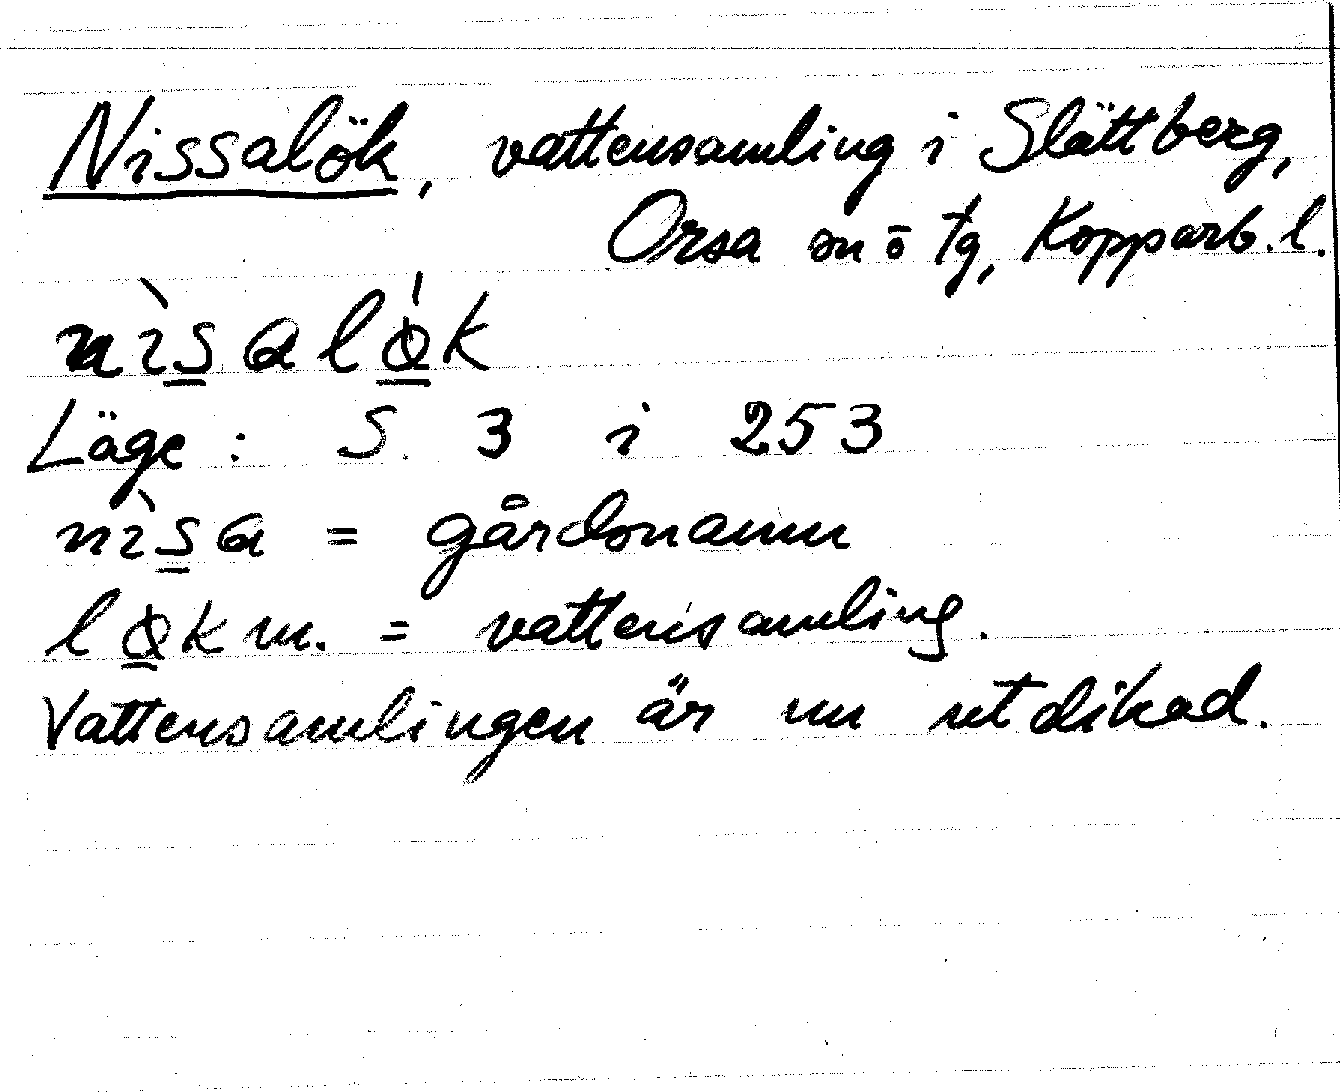 Nissalök, vattensamling i Slättberg,
Orsa sn o tg, Kopparb. l.
nìs̲alǿ̲k
Läge: S. 3 i 253
nìs̲a = gårdsnamn
lø̲k m. = vattensamling.
Vattensamlingen är nu utdikad.